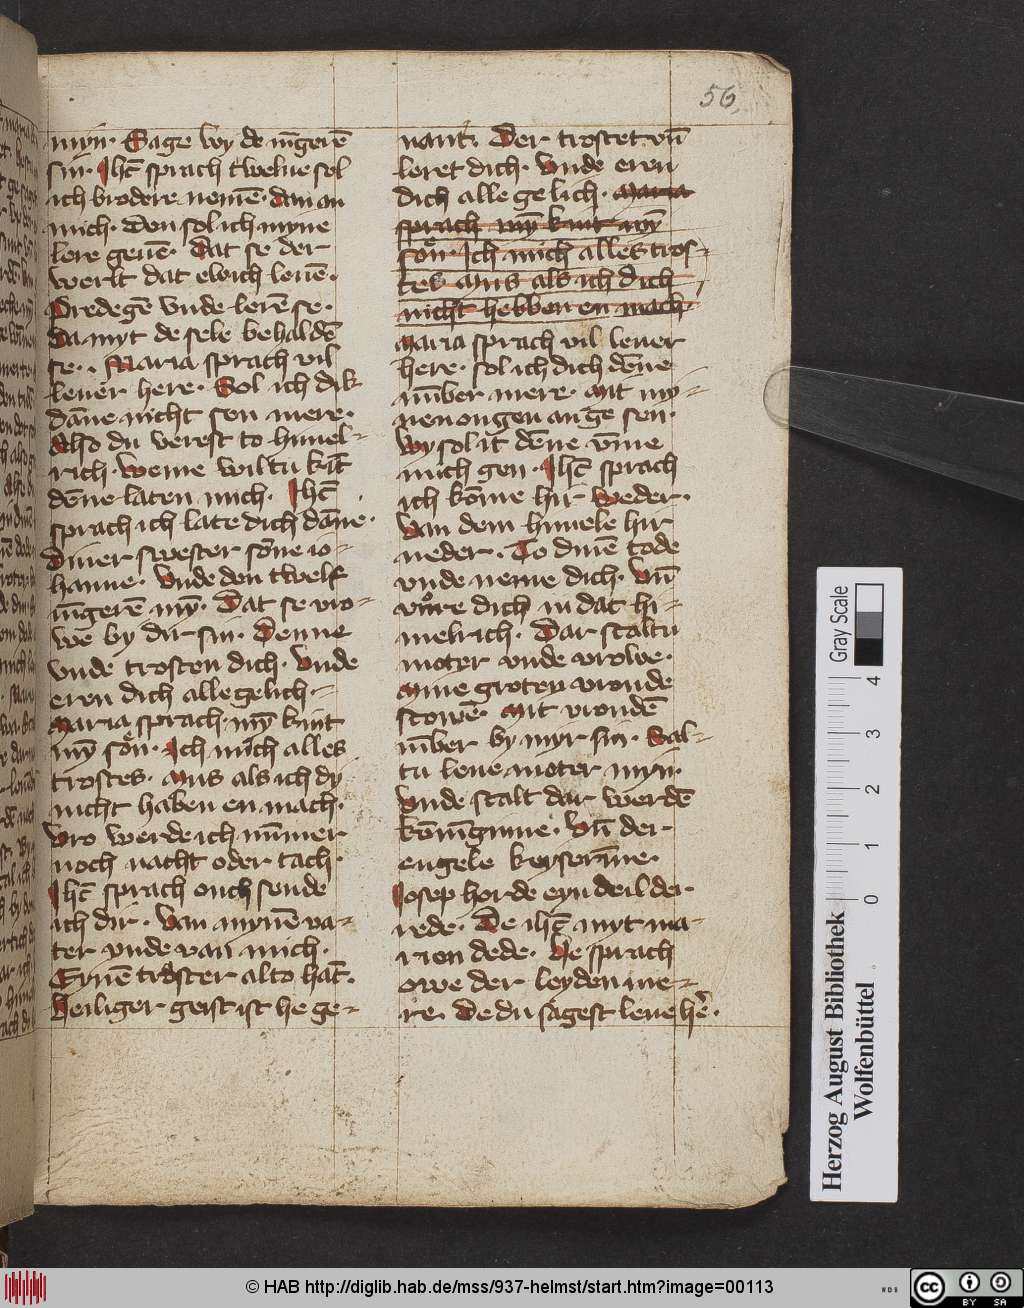 56
myn. Sage wy de iu̅gere̅
sin. Ihc̅ sprach twelue sol
ich brodere neme̅. dan an
mich. den sol ich myne
lere geue̅. Dat se der
werlt dat ewich leue̅.
Predege̅ vnde lere̅ se.
Da myt de sele behalde̅
se. Maria sprach vil
leuer here. Sol ich dik
da̅ne nicht sen mere.
Also du verest to himel-
rich. weme wiltu kīt
de̅ne laten mich. Ihc̅
sprach ich late dich da̅ne.
Diner swester so̅ne io-
hanne. Vnde den twelf
iu̅gere̅ my̅. Dat se vro-
we by dir sin. Denne
vnde trosten dich. Vnde
eren dich alle gelich.
Maria sprach. my̅ kint
my̅ son. Ich mich alles
trostes. Mus als ich dy
nicht haben en mach.
Vro werde ich nu̅mer
noch nacht oder tach.
Ihc̅ sprach ouch sende
ich dir. Van myne̅ va-
ter vnde van mich.
Eyne̅ troster alto hāt.
Heiliger geist ist he ge-
nant. Der trostet vn̅
leret dich. Vnde eren
dich alle gelich. Maria
sprach my̅ kint my̅
son. Ich mich alles tros-
tes Mus als ich dich
nicht hebben en mach.
Maria sprach vil leuer
here. sol ich dich de̅ne
nu̅ber mere. Mit my-
nen ougen an ge sen.
Wy sol it de̅ne v̅me
mich gen. Ihc̅ sprach
ich ko̅me hir weder.
Van dem himele hir
neder. To dine̅ tode
vnde neme dich. Vn̅
vore dich in dat hi-
melrich. Dar staltu
moter vnde vrowe.
Mine groten vronde
scowe̅. Mit vronde̅
iu̅ber by myr sin. Sal-
tu leue moter myn.
Vnde stalt dar werde̅
ko̅ni̅ginne. Vn̅ der
engele keyseri̅ne.
Iosep horde eyn deil der
rede. De ihc̅ myt ma
rien dede. He sprach
owe der leyden me-
re. De du sagest leue he̅.
Herzog August Bibliothek
Wolfenbüttel
Gray Scale
0 1 2 3 4
© HAB http://diglib.hab.de/mss/937-helmst/start.htm?image=00113
WDB
cc BY SA